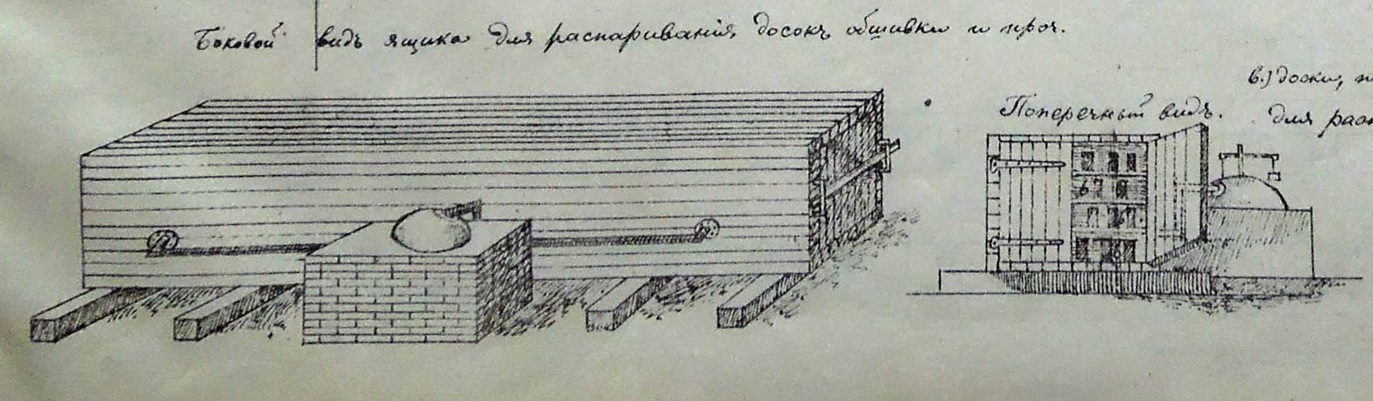 Боковой видъ ящика для распариванія досокъ обшивки и проч.
в.) доски, п
Поперечный видъ. для расп